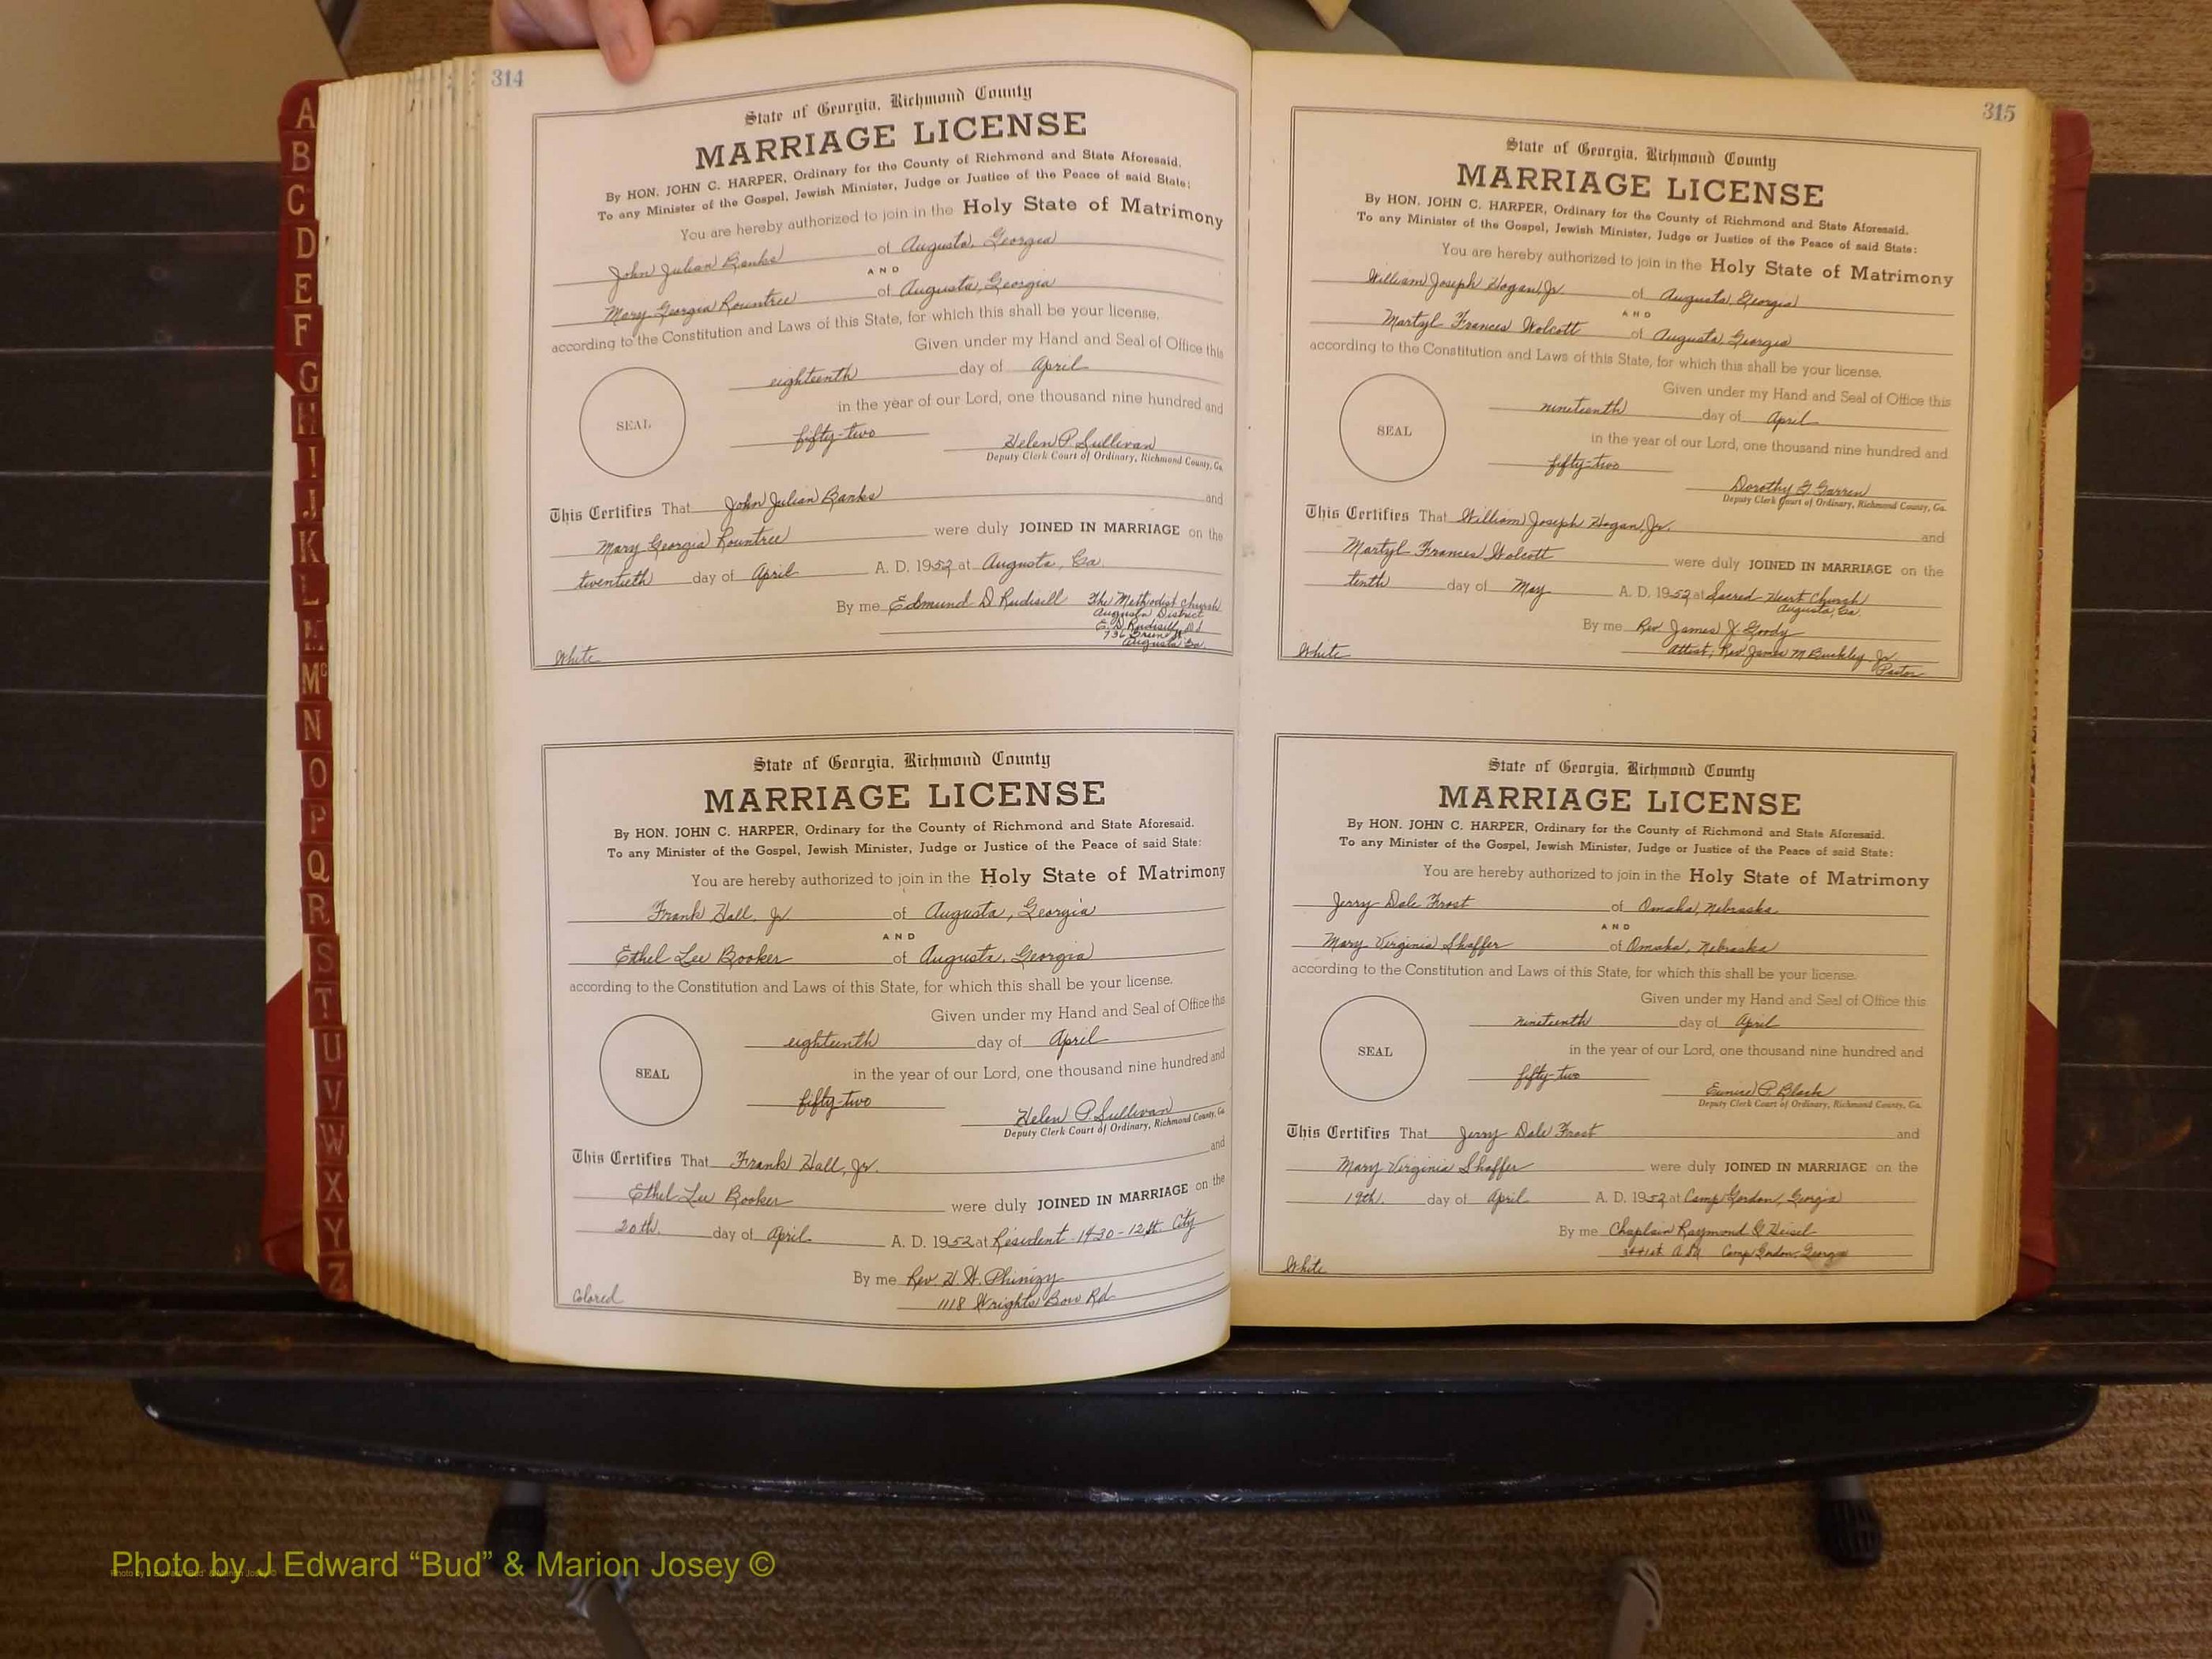 314
State of Georgia, Richmond County
MARRIAGE LICENSE
By HON. JOHN C. HARPER, Ordinary for the County of Richmond and State Aforesaid.
To any Minister of the Gospel, Jewish Minister, Judge or Justice of the Peace of said State:
You are hereby authorized to join in the Holy State of Matrimony
John Julian Banks of Augusta, Georgia
AND
Mary Georgia Rountree of Augusta, Georgia
according to the Constitution and Laws of this State, for which this shall be your license.
Given under my Hand and Seal of Office this
eighteenth day of April
SEAL
in the year of our Lord, one thousand nine hundred and
fifty-two
Helen P. Sullivan
Deputy Clerk Court of Ordinary, Richmond County, Ga.
This Certifies That John Julian Banks and
Mary Georgia Rountree were duly JOINED IN MARRIAGE on the
twentieth day of April A. D. 1952 at Augusta, Ga.
By me Edmund D Rudisill The Methodist Church
Augusta District
E. D. Rudisill, D.S.
736
Augusta Ga.
White
State of Georgia, Richmond County
MARRIAGE LICENSE
By HON. JOHN C. HARPER, Ordinary for the County of Richmond and State Aforesaid.
To any Minister of the Gospel, Jewish Minister, Judge or Justice of the Peace of said State:
You are hereby authorized to join in the Holy State of Matrimony
Frank Hall, Jr of Augusta, Georgia
AND
Ethel Lee Booker of Augusta, Georgia
according to the Constitution and Laws of this State, for which this shall be your license.
Given under my Hand and Seal of Office this
eighteenth day of April
SEAL
in the year of our Lord, one thousand nine hundred and
fifty-two
Helen P Sullivan
Deputy Clerk Court of Ordinary, Richmond County, Ga.
This Certifies That Frank Hall, Jr. and
Ethel Lee Booker were duly JOINED IN MARRIAGE on the
20th. day of April A. D. 1952 at Resident 1430-12 St. City
By me Rev. H. W. Phinizy
1118 Wrights Bow Rd
Colored
315
State of Georgia, Richmond County
MARRIAGE LICENSE
By HON. JOHN C. HARPER, Ordinary for the County of Richmond and State Aforesaid.
To any Minister of the Gospel, Jewish Minister, Judge or Justice of the Peace of said State:
You are hereby authorized to join in the Holy State of Matrimony
William Joseph Hogan, Jr. of Augusta, Georgia
AND
Martyl Frances Wolcott of Augusta, Georgia
according to the Constitution and Laws of this State, for which this shall be your license.
Given under my Hand and Seal of Office this
nineteenth day of April
SEAL
in the year of our Lord, one thousand nine hundred and
fifty-two
Dorothy G. Garren
Deputy Clerk Court of Ordinary, Richmond County, Ga.
This Certifies That William Joseph Hogan, Jr. and
Martyl Frances Wolcott were duly JOINED IN MARRIAGE on the
tenth day of May A. D. 1952 at Sacred Heart Church
Augusta, Ga.
By me Rev James J. Goody
attest, Rev James M Buckley, Jr
Pastor
White
State of Georgia, Richmond County
MARRIAGE LICENSE
By HON. JOHN C. HARPER, Ordinary for the County of Richmond and State Aforesaid.
To any Minister of the Gospel, Jewish Minister, Judge or Justice of the Peace of said State:
You are hereby authorized to join in the Holy State of Matrimony
Jerry Dale Frost of Omaha, Nebraska
AND
Mary Virginia Shaffer of Omaha, Nebraska
according to the Constitution and Laws of this State, for which this shall be your license.
Given under my Hand and Seal of Office this
nineteenth day of April
SEAL
in the year of our Lord, one thousand nine hundred and
fifty-two
Eunice P. Black
Deputy Clerk Court of Ordinary, Richmond County, Ga.
This Certifies That Jerry Dale Frost and
Mary Virginia Shaffer were duly JOINED IN MARRIAGE on the
19th. day of April A. D. 1952 at Camp Gordon, Georgia
By me Chaplain Raymond G Heisel
Camp Gordon, Georgia
White
A
B
C
D
E
F
G
H
I
J
K
L
M
Mc
N
O
P
Q
R
S
T
U
V
W
X
Y
Z
Photo by J Edward “Bud” & Marion Josey ©